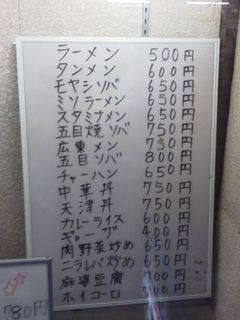 ラーメン 500円
タンメン 600円
モヤシソバ 650円
ミソラーメン 650円
スタミナメン 650円
五目焼ソバ 750円
広東メン 750円
五目ソバ 800円
チャーハン 650円
中華丼 750円
天津丼 750円
カレーライス 600円
ギョーザ 400円
肉野菜炒め 650円
ニラレバ炒め 650円
麻婆豆腐 700円
ホイコーロ 700円
780円